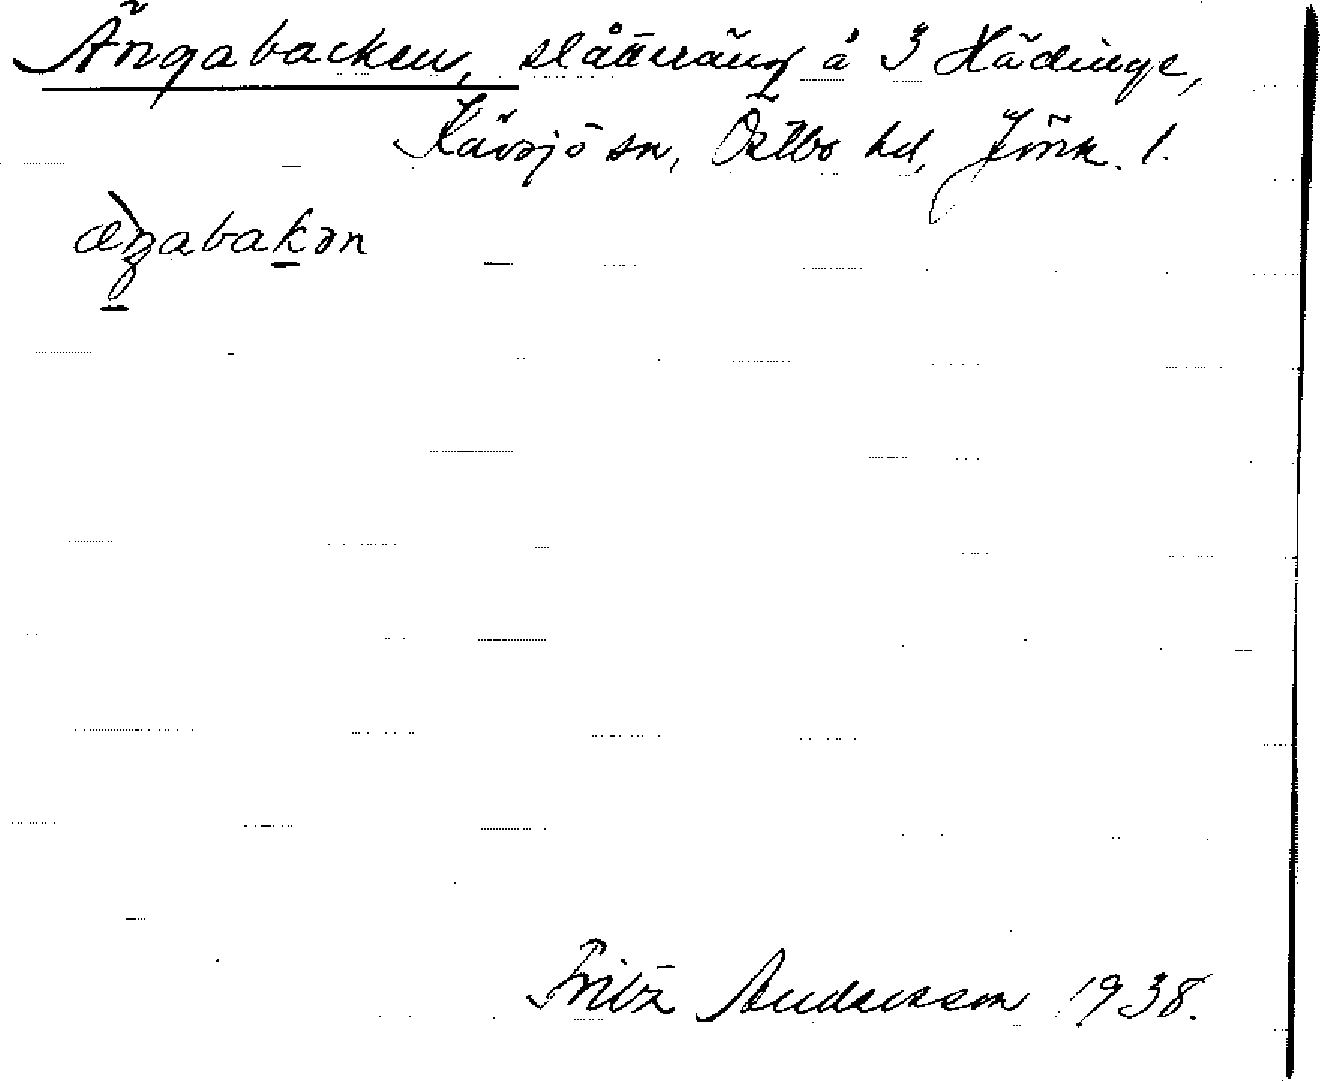 Ängabacken, slåtteräng å 3 Hädinge,
Kävsjö sn, Östbo hd, Jönk. l.
æŋabakən
Fritz Andersson 1938.